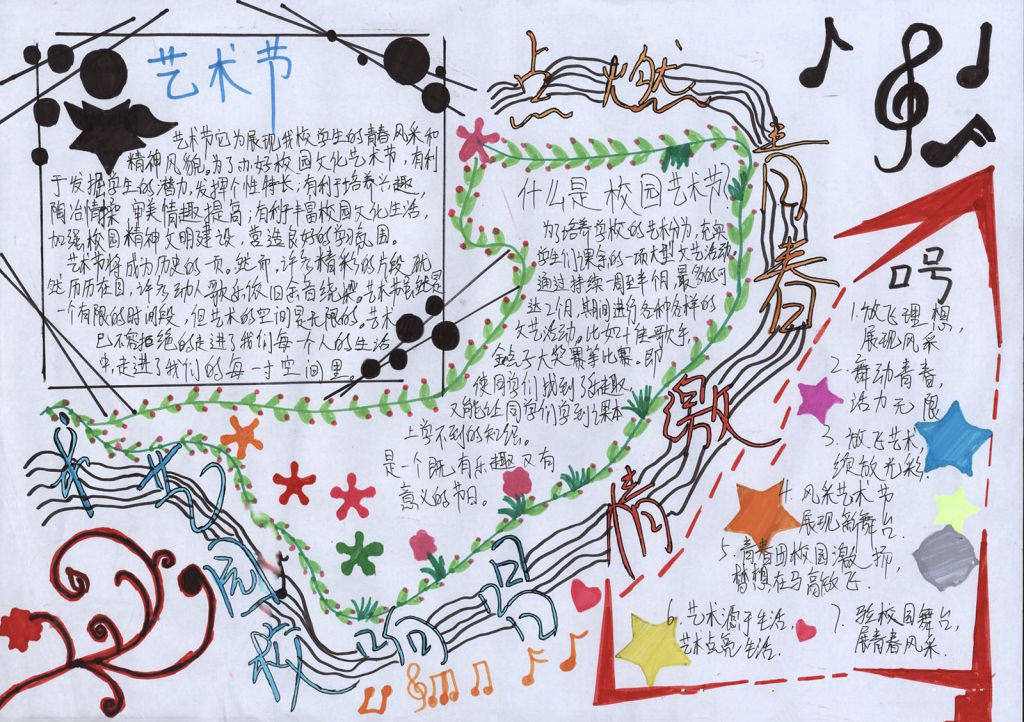 艺术节
艺术节它为展现我校学生的青春风采和
精神风貌。为了办好校园文化艺术节,有利
于发掘学生的潜力,发挥个性特长,有利于培养兴趣
陶冶情操,审美情趣提高;有利于丰富校园文化生活,
加强校园精神文明建设,营造良好的学习氛围。
艺术节将成为历史的一页。然而,许多精彩的片段,
然历历在目,许多动人歌乐依旧余音绕梁。艺术节虽然是
一个有限的时间段,但艺术的空间是无限的。艺术
已不容拒绝的走进了我们每一个人的生活
中,走进了我们的每一寸空间里。
点燃青春激情
唱响校园艺术
什么是校园艺术节
为了培养学校的艺术分为,充实
学生们课余的一项大型文艺活动
通过持续一周至半个月,最多的可
达2个月,期间进行各种各样的
文艺活动。比如十佳歌手,
金话子大奖赛等比赛。即
使同学们找到了乐趣,
又能让同学们学到课本
上学不到的知识。
是一个既有乐趣又有
意义的节日。
口号
1.放飞理想,
展现风采
2.舞动青春,
活力无限
3.放飞艺术,
绽放光彩,
4.风采艺术节
展现新舞台.
5.青春因校园激扬,
梦想在马高放飞.
6.艺术源于生活,
艺术点亮生活.
7.强校园舞台,
展青春风采.